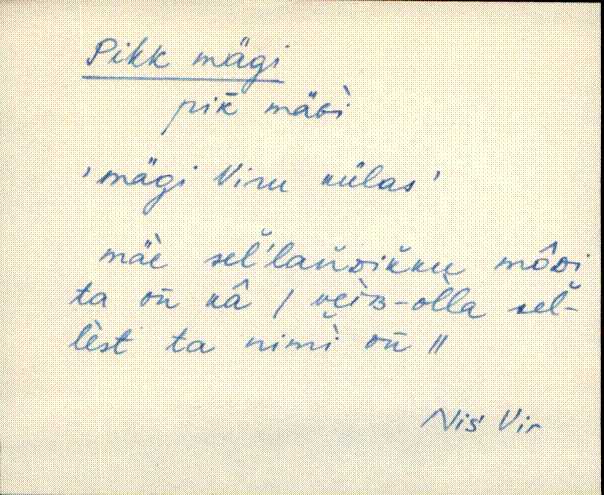 Pikk mägi
pik̄ mäɢì
'mägi Viru külas'
mäè sel̆'lan̆ᴅikku mô̬ᴅi
ta on̄ kâ / vèiʙ-òlla sel̆-
lèst ta nimì on̄ //
Nis Vir